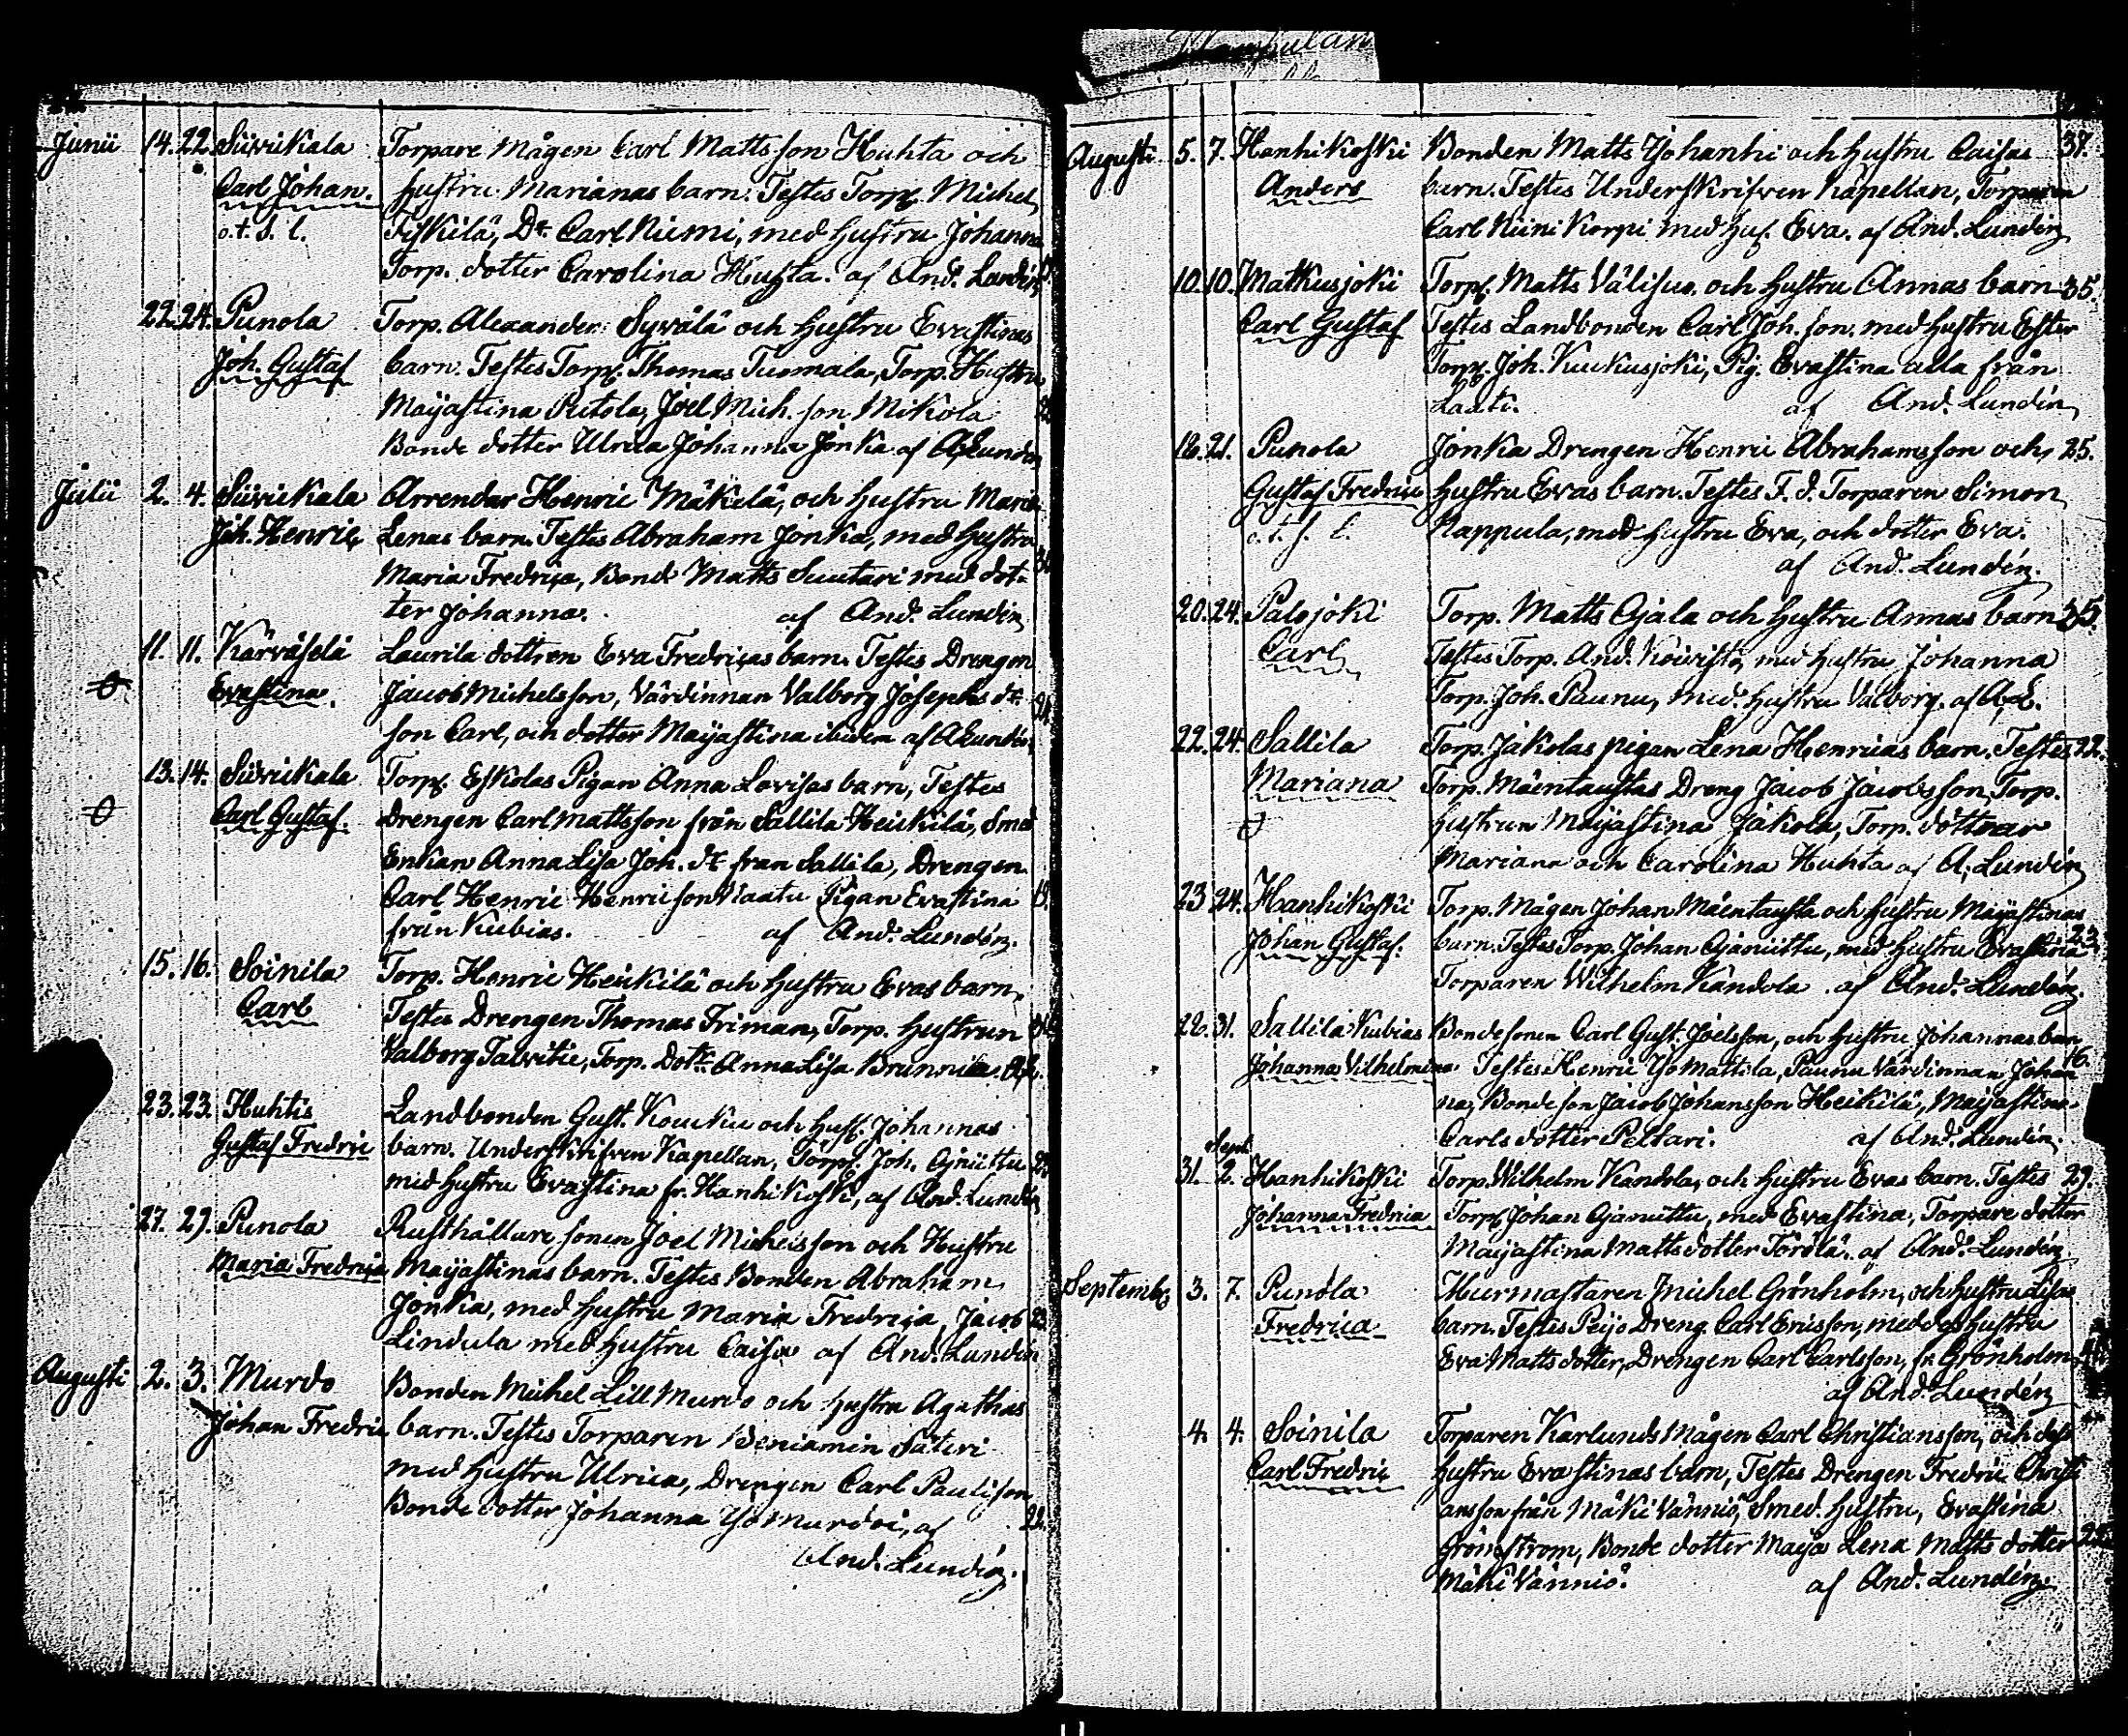 Junii 14. 22. Siivikala Torpare Mågen Carl Matts son Huhta och
Carl Johan. hustru Marianas barn. Testes Torp. Michel
o.t.s.l. Fiskilä, Dr. Carl Niemi, med hustru Johanna
Torp. dotter Carolina Huhta. af And. Lundén
22. 24. Punola Torp. Alexander Syvälä och hustru Evastinas
Joh. Gustaf barn. Testes Torp. Thomas Tuomala, Torp. Hustru
Majastina Putola, Joel Mich. son Mikola
Bonde dotter Ulrica Johanna Jonka af A. Lundén
Julii 2. 4. Siivickala Arrendar Henric Mäkelä, och hustru Maria
Joh. Henric Lenas barn. Testes Abraham Jonka, med hustru
Maria Fredrica, Bond Matts Suutari med dot-
ter Johanna. af And. Lundén
11. 11. Kärväselä Laurila dottren Eva Fredricas barn. Testes Drengen
Evastina. Jacob Michelsson, Värdinnan Valborg Josephs dr.
son Carl, och dotter Majastina ibidem af A Lundén
13. 14. Siivickala Torp. Eskolas Pigan Anna Lovisas barn, Testes
Carl Gustaf. Drengen Carl Mattsson från Sallila Heickilä, Smed
Enkan Anna Lisa Joh. dr från Sallila, Drengen
Carl Henric Henricsson Pigan Evastina 18.
från Kubias. af And. Lundén.
15. 16. Soinila Torp. Henric Heickilä och hustru Evas barn.
Carl Testes Drengen Thomas Friman, Torp. hustrun
Valborg Talvitie, Torp. Dottr Anna Lisa Brunnila. A.L.
23. 23. Huhtis Landbonden Gust. Koucku och hust. Johannas
Gustaf Fredric barn. Underskrifven Kapellan, Torp. Joh. Ojanuttu
med hustru Evastina fr. Hanhikoski, af And. Lundén
27. 29. Punola Rusthållare sonen Joel Michelsson och Hustru
Maria Fredrica Majastinas barn. Testes Bonden Abraham
Jonka, med hustru Maria Fredrica, Jacob 23
Lindula med hustru Caisa af And. Lundén
Augusti 2. 3. Murdo Bonden Michel Lill Murdo och hustru Agathas
Johan Fredric barn. Testes Torparen Beniamin Säteri
med hustru Ulrica, Drengen Carl Paulisson
Bonde dotter Johanna Yö Murdoi, af 22.
And. Lundén.
Augusti 5. 7. Hanhikoski Bonden Matts Yöhanhi och hustru Caisas 37.
Anders barn. Testes Underskrifven Kapellan, Torparen
Carl Niini Korpi med hus. Eva. af And. Lundén
10. 10. Matkusjoki Torp. Matts Välisuo och hustru Annas barn 35.
Carl Gustaf Testes Landbonden Carl Joh. son med hustru Ester
Torp. Joh. Kuckusjoki, Pig. Evastina alla från
af And. Lundén
18. 21. Punola Jonka Drengen Henric Abrahamsson och 25.
Gustaf Fredric hustru Evas barn. Testes F. d. Torparen Simon
o.t.s.l. Nappula, med hustru Eva, och dotter Eva.
af And. Lundén.
20. 24. Palojoki Torp. Matts Ojala och hustru Annas barn 35.
Carl Testes Torp. And. Koivisto, med hustru Johanna
Torp. Joh. Paunu, med hustru Valborg. af A.L.
22. 24. Sallila Torp. Jakolas pigan Lena Henricas barn. Testes 22.
Mariana Torp. Mäentaustas Dreng Jacob Jacobsson, Torp.
hustrun Majastina Jakola, Torp. döttrar
Mariana och Carolina Huhta af A. Lundén
23 24. Hanhikoski Torp. Mågen Johan Mäentausta och hustru Majastinas
Johan Gustaf. barn. Testes Torp. Johan Ojanuttu, med hustru Evastina 23.
Torparen Wilhelm Kandola. af And. Lundén.
28. 31. Sallila Kubias Bondesonen Carl Gust. Joelsson, och hustru Johannas barn
Johanna Vilhelmina Testes Henric Yö Mattila, Paunu Värdinnan Johan
na, Bonde son Jacob Johansson Heickilä, Majastina
Carls dotter Peltari. af And. Lundén.
Sept.
31. 2. Hanhikoski Torp. Wilhelm Kandola, och hustru Evas barn. Testes 29.
Johanna Fredrica Torp. Johan Ojanuttu, med Evastina, Torpare dotter
Majastina Matts dotter Törölä. af And. Lundén
Septemb. 3. 7. Punola Murmästaren Michel Grönholm, och hustru Lisas
Fredrica barn. Testes Peijo Dreng Carl Ericsson, med dess hustru
Eva Matts dotter, Drengen Carl Carlsson, fr. Grönholm,
af And. Lundén
4. 4. Soinila Torparen Karlunds Mågen Carl Christiansson, och dess
Carl Fredric hustru Evastinas barn, Testes Drengen Fredric Christi
ansson från Mäki Vänniö, Smed. hustru, Evastina
Grönstrom, Bonde dotter Maja Lena Matts dotter
Mäki Vänniö. af And. Lundén.